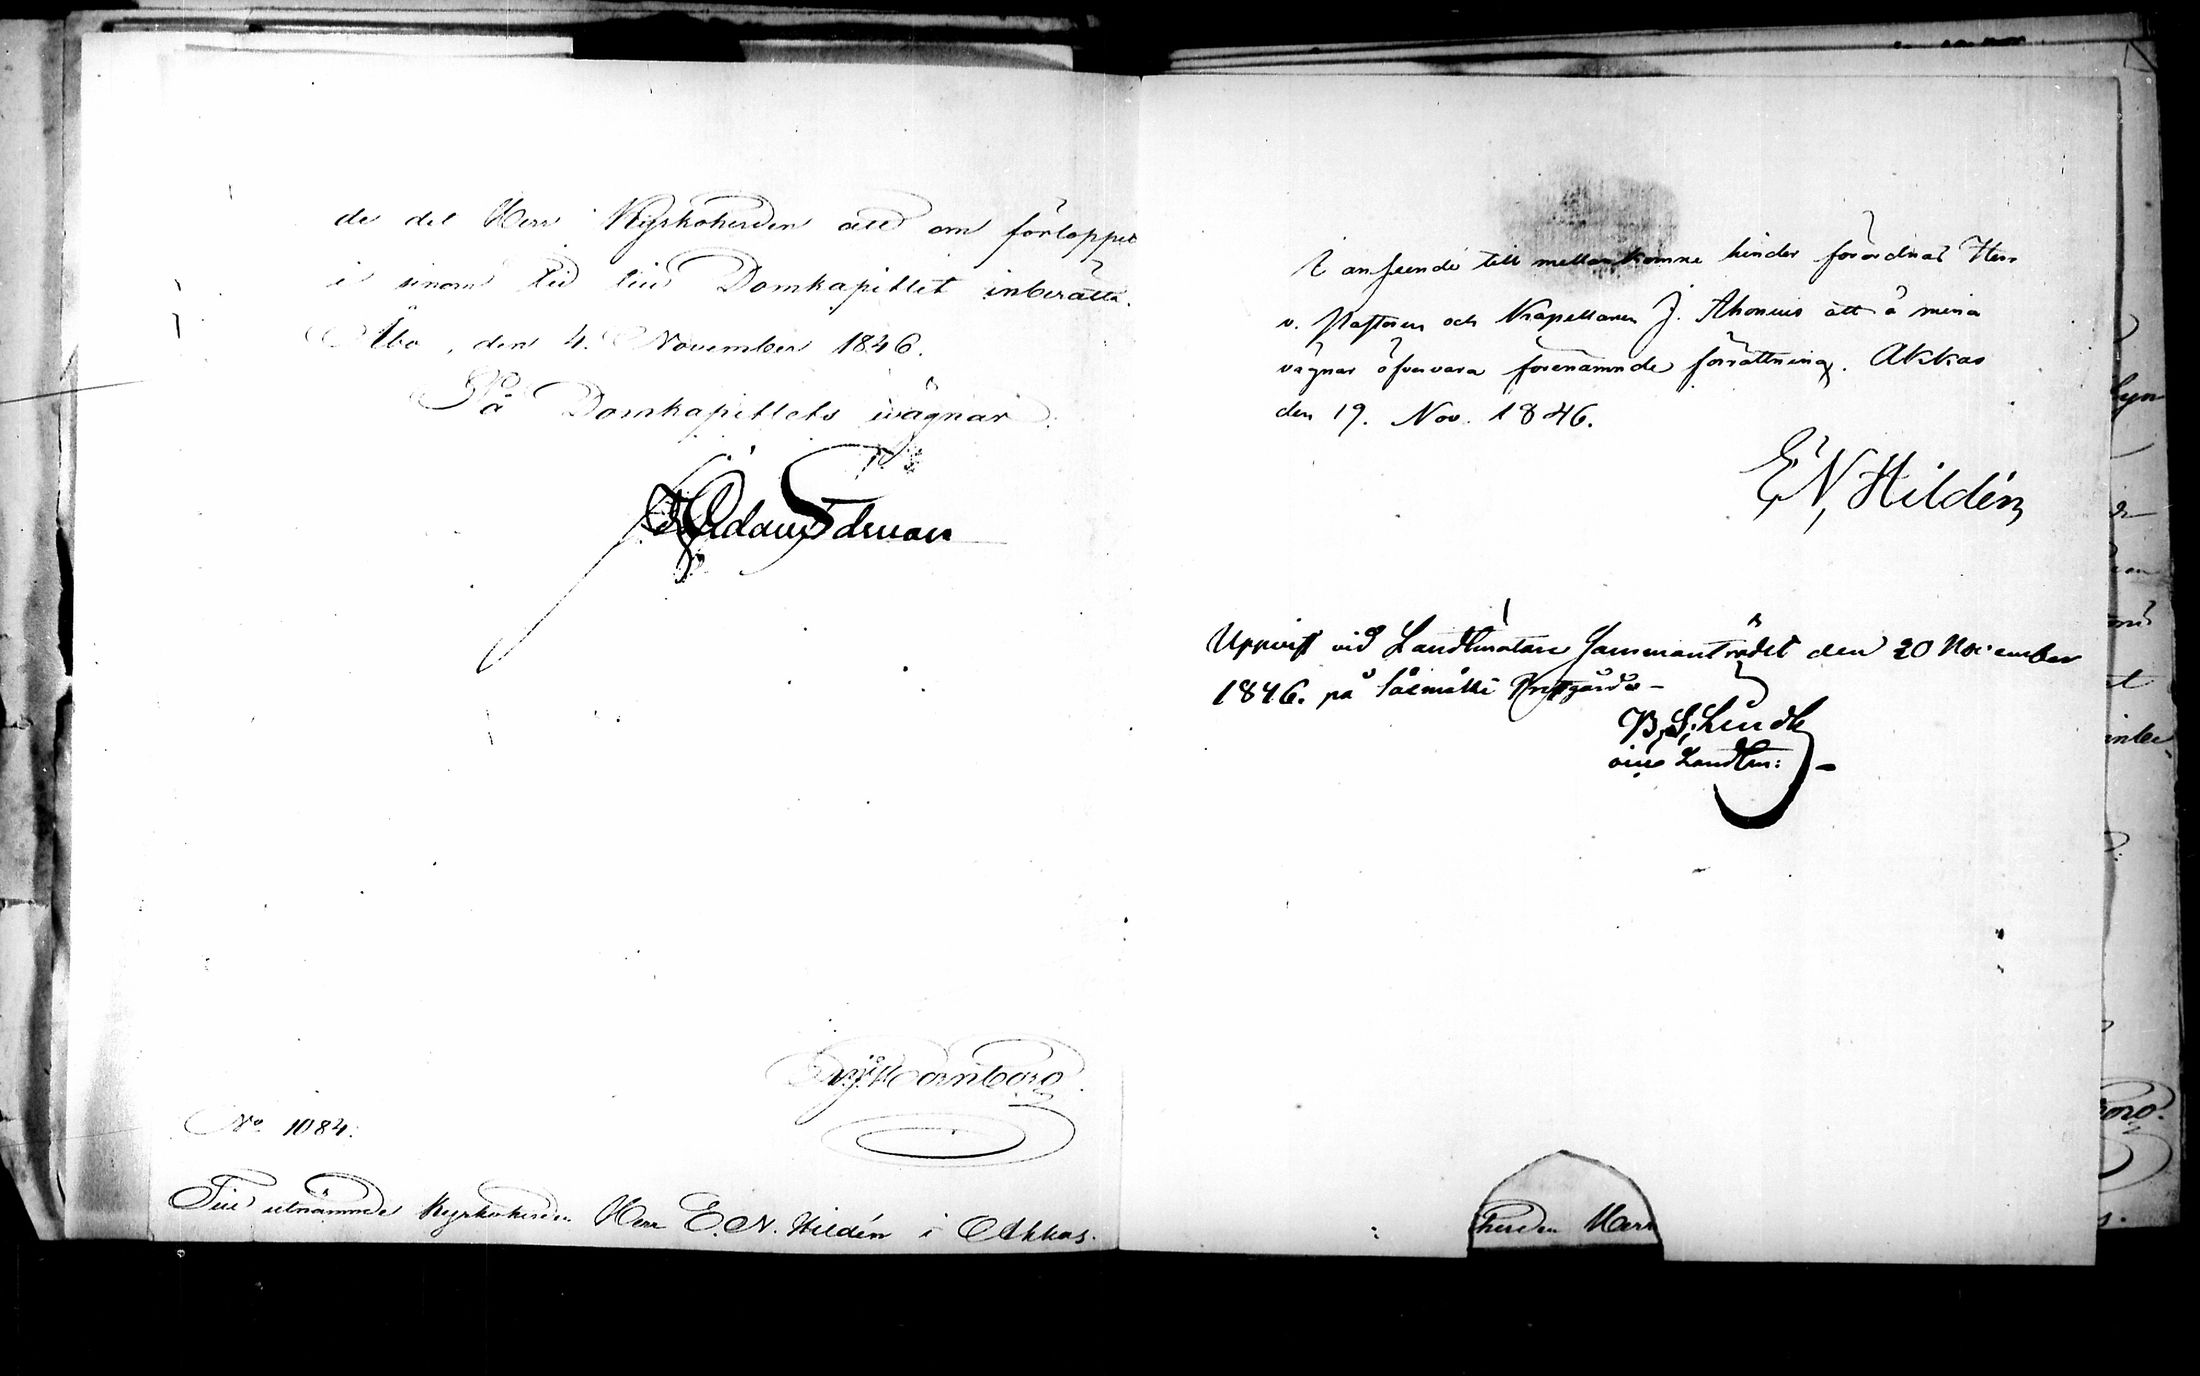 de det Herr Kyrkoherden att om förloppet
i sinom tid till Domkapitlet inberätta.
Åbo, den 4. November 1846.
På Domkapitlets wägnar:
No 1084.
Till utnämnde Kyrkoherden Herr E. N. Hildén i Akkas.
I anseende till mellankomne hinder förordnas Herr
v. Pastorn och Kapellanen J. Ahonius att å mina
vägnar öfvervara förenämnde förrättning. Akkas
den 19. Nov. 1846.
E. N. Hildén
Uppvist vid Landtmätare Sammanträdet den 20 November
1846. på Prestgård
B. S. Lindh
Landtm:
herden Herr